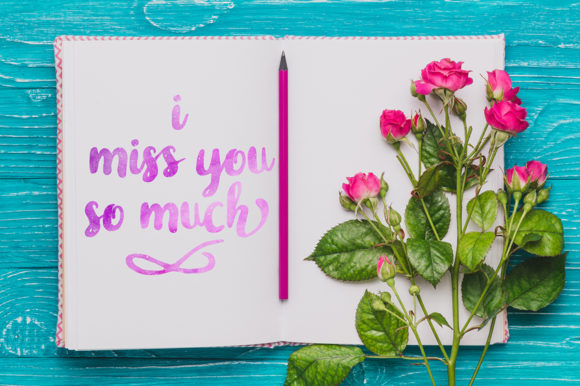 i
miss you
so much